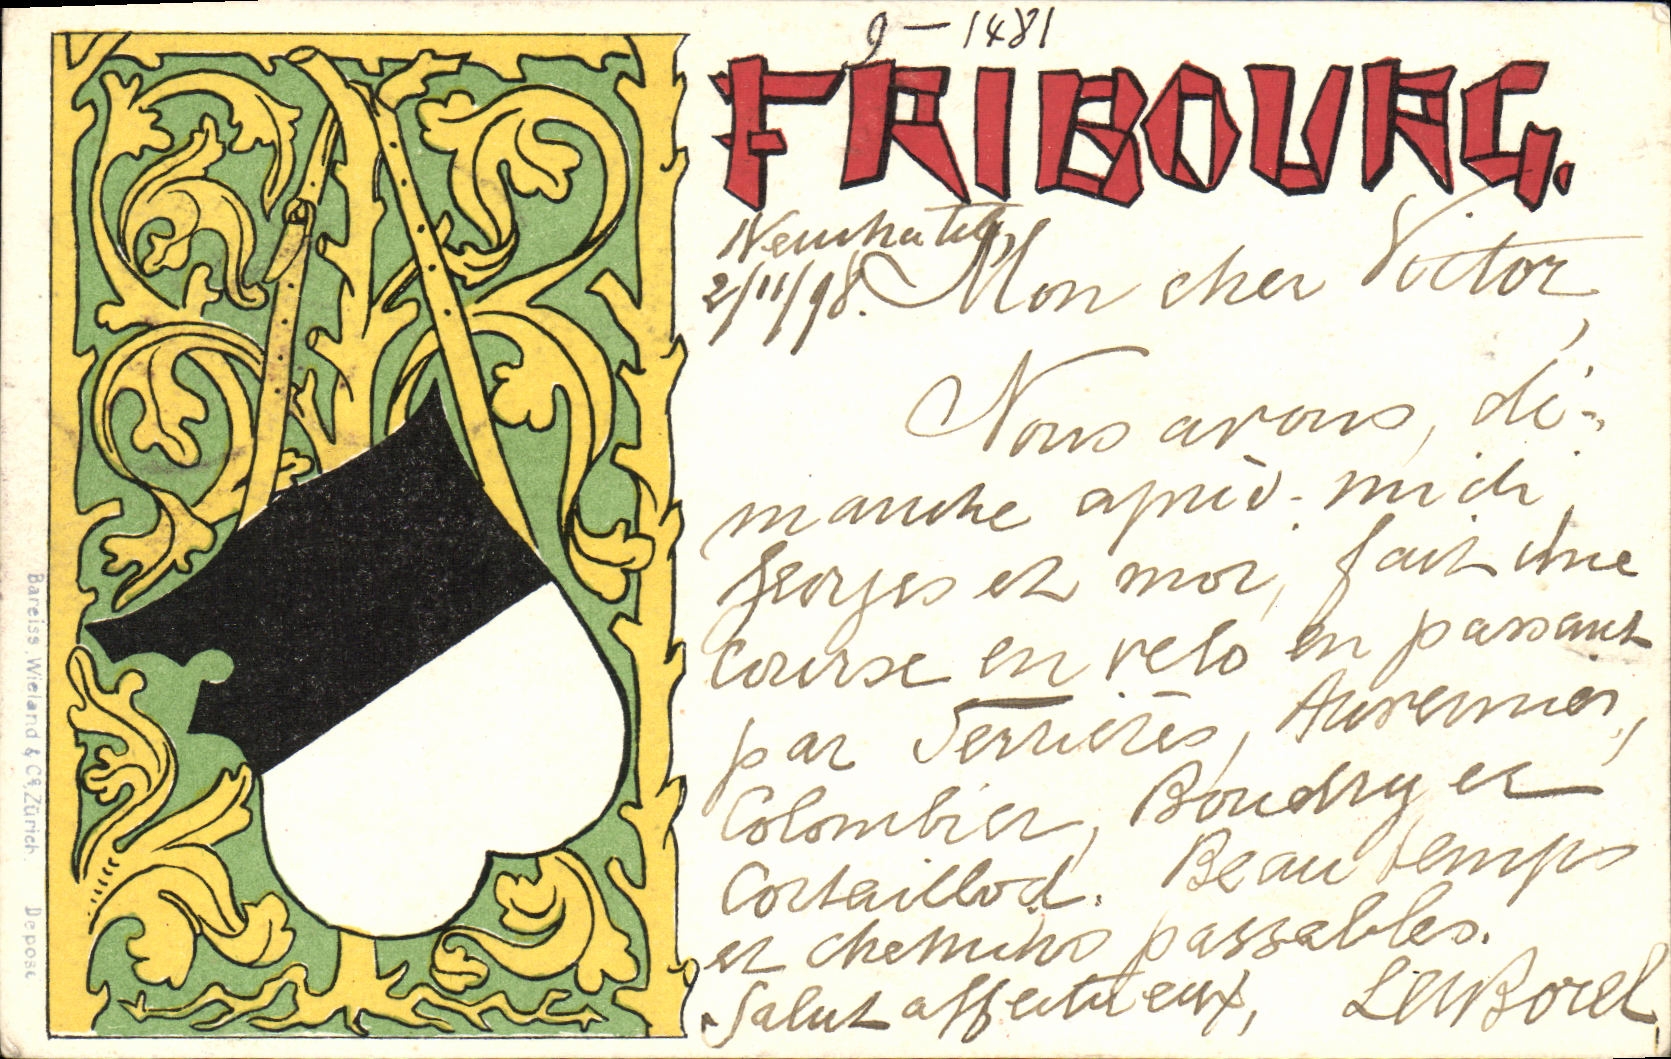 9 – 1481
FRIBOURG.
Neuchâtel,
2/11/98. Mon cher Victor,
Nous avons, di-
manche après-midi,
Georges et moi, fait une
course en vélo en passant
par Serrières, Auvernier,
Colombier, Boudry et
Cortaillod. Beau temps
et chemins passables.
Salut affectueux, Borel
Bareiss, Wieland & Co, Zürich. Déposé